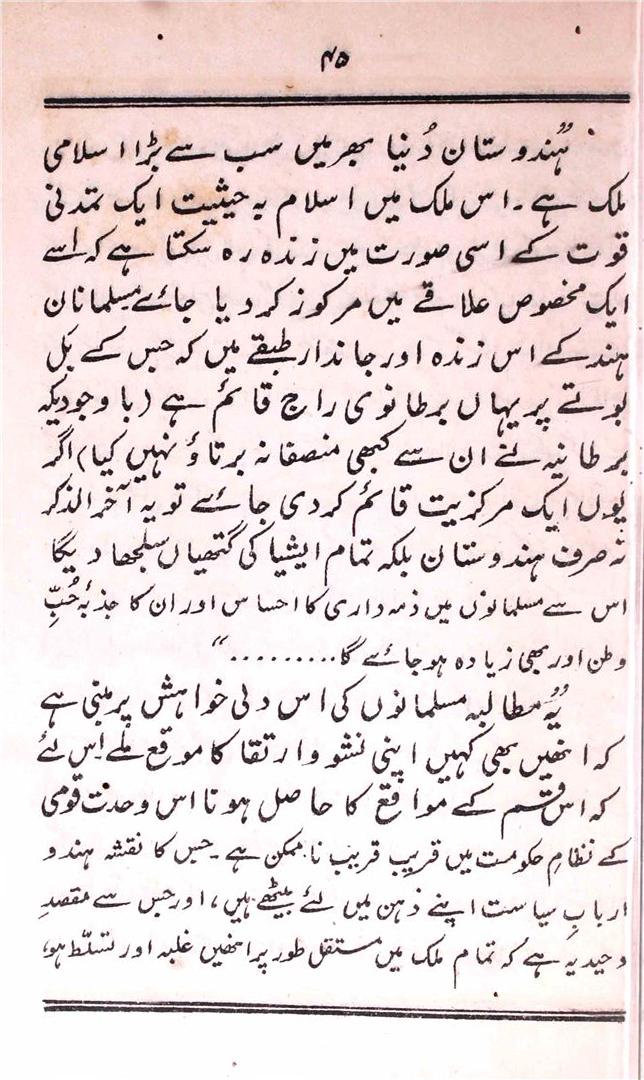 ۴۵
”ہندوستان دُنیا بھر میں سب سے بڑا اسلامی
ملک ہے۔ اس ملک میں اسلام بہ حیثیت ایک تمدنی
قوت کے اسی صورت میں زندہ رہ سکتا ہے کہ اسے
ایک مخصوص علاقے میں مرکوز کر دیا جائے مسلمانان
ہند کے اس زندہ اور جاندار طبقے میں کہ جس کے بل
بوتے پر یہاں برطانوی راج قائم ہے (با وجودیکہ
برطانیہ نے ان سے کبھی منصفانہ برتاؤ نہیں کیا) اگر
یوں ایک مرکزیت قائم کر دی جائے تو یہ آخر الذکر
نہ صرف ہندوستان بلکہ تمام ایشیا کی گتھیاں سلجھا دیگا
اس سے مسلمانوں میں ذمہ داری کا احساس اور ان کا جذبۂ حُبِّ
وطن اور بھی زیادہ ہو جائے گا.........“
”یہ مطالبہ مسلمانوں کی اس دلی خواہش پر مبنی ہے
کہ انھیں بھی کہیں اپنی نشو و ارتقا کا موقع ملے اس لئے
کہ اس قسم کے مواقع کا حاصل ہونا اس وحدت قومی
کے نظامِ حکومت میں قریب قریب ناممکن ہے۔ جس کا نقشہ ہندو
اربابِ سیاست اپنے ذہن میں لئے بیٹھے ہیں، اور جس سے مقصدِ
وحید یہ ہے کہ تمام ملک میں مستقل طور پر انھیں غلبہ اور تسلّط ہو،